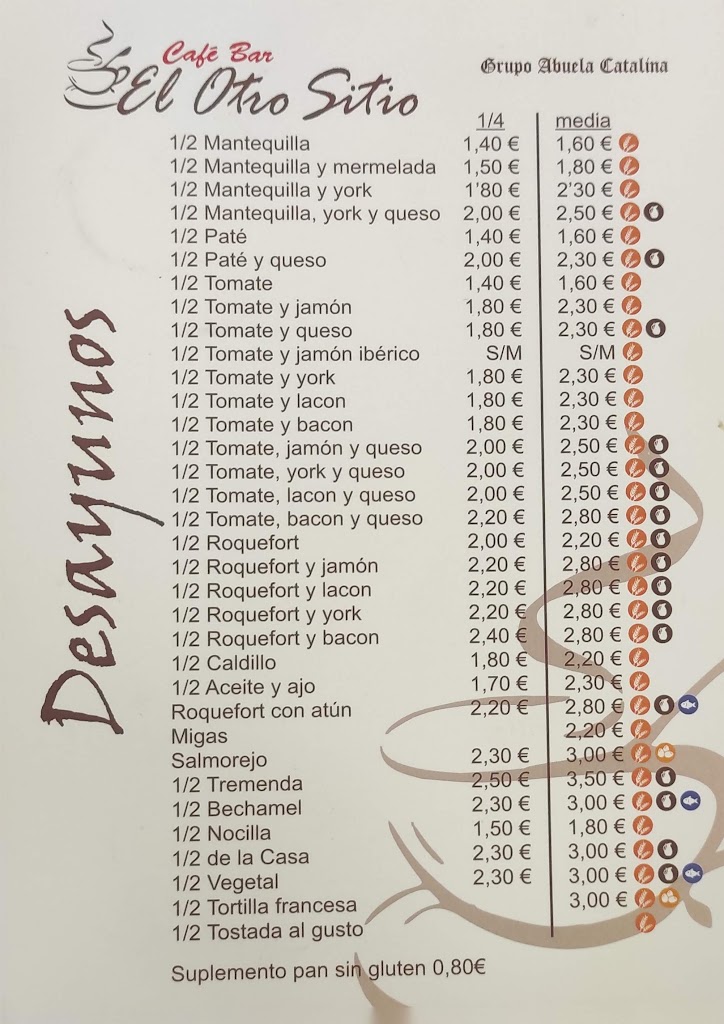 Café Bar
El Otro Sitio
Grupo Abuela Catalina
Desayunos
1/4 media
1/2 Mantequilla 1,40 € 1,60 €
1/2 Mantequilla y mermelada 1,50 € 1,80 €
1/2 Mantequilla y york 1'80 € 2'30 €
1/2 Mantequilla, york y queso 2,00 € 2,50 €
1/2 Paté 1,40 € 1,60 €
1/2 Paté y queso 2,00 € 2,30 €
1/2 Tomate 1,40 € 1,60 €
1/2 Tomate y jamón 1,80 € 2,30 €
1/2 Tomate y queso 1,80 € 2,30 €
1/2 Tomate y jamón ibérico S/M S/M
1/2 Tomate y york 1,80 € 2,30 €
1/2 Tomate y lacon 1,80 € 2,30 €
1/2 Tomate y bacon 1,80 € 2,30 €
1/2 Tomate, jamón y queso 2,00 € 2,50 €
1/2 Tomate, york y queso 2,00 € 2,50 €
1/2 Tomate, lacon y queso 2,00 € 2,50 €
1/2 Tomate, bacon y queso 2,20 € 2,80 €
1/2 Roquefort 2,00 € 2,20 €
1/2 Roquefort y jamón 2,20 € 2,80 €
1/2 Roquefort y lacon 2,20 € 2,80 €
1/2 Roquefort y york 2,20 € 2,80 €
1/2 Roquefort y bacon 2,40 € 2,80 €
1/2 Caldillo 1,80 € 2,20 €
1/2 Aceite y ajo 1,70 € 2,30 €
Roquefort con atún 2,20 € 2,80 €
Migas 2,20 €
Salmorejo 2,30 € 3,00 €
1/2 Tremenda 2,50 € 3,50 €
1/2 Bechamel 2,30 € 3,00 €
1/2 Nocilla 1,50 € 1,80 €
1/2 de la Casa 2,30 € 3,00 €
1/2 Vegetal 2,30 € 3,00 €
1/2 Tortilla francesa 3,00 €
1/2 Tostada al gusto
Suplemento pan sin gluten 0,80€